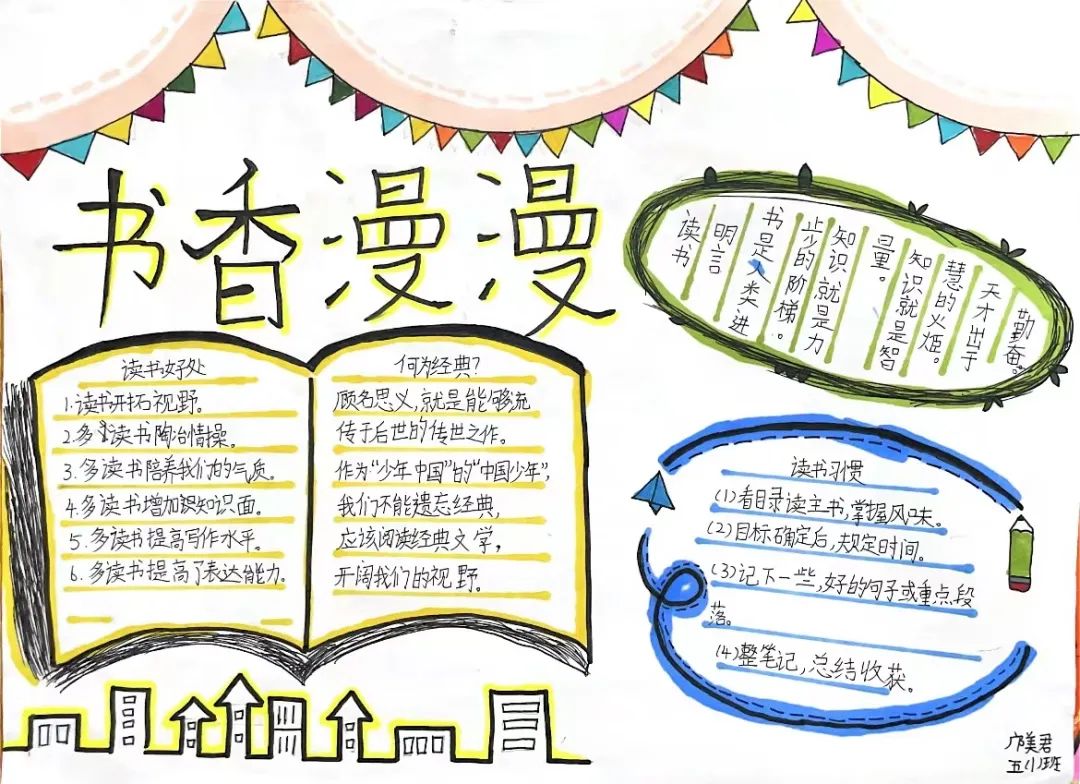 书香漫漫
读书好处
1.读书开拓视野。
2.多读书陶冶情操。
3.多读书陪养我们的气质。
4.多读书增加识知识面。
5.多读书提高写作水平。
6.多读书提高了表达能力。
何为经典?
顾名思义,就是能够流
传于后世的传世之作。
作为“少年中国”的“中国少年”,
我们不能遗忘经典,
应该阅读经典文学,
开阔我们的视野。
读书
明言
书是人类进
步的阶梯。
知识就是力
量。
知识就是智
慧的火炬。
天才出于
勤奋。
读书习惯
(1)看目录读主书,掌握风味。
(2)目标确定后,规定时间。
(3)记下一些,好的句子或重点段
落。
(4)整笔记,总结收获。
美君
五(1)班